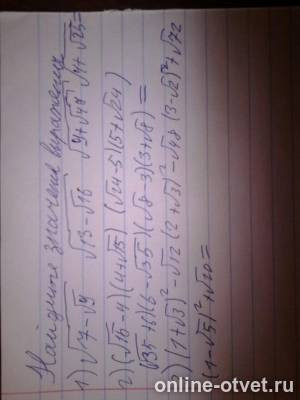 Найдите значение выражения
1) √7-√9 √13-√16 √9+√49 √11+√25=
2) (√16-4)(4+√15) (√24-5)(5+√24)
(√35+6)(6-√35)(√8-3)(3+√8)=
3) (1+√3)²-√12 (2+√3)²-√48 (3-√2)²+√72
(1-√5)²+√20=
online-otvet.ru